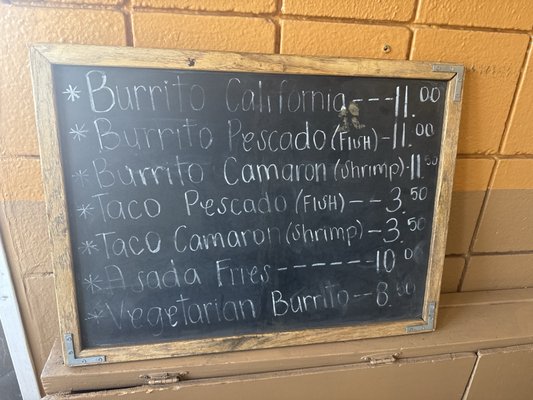 * Burrito California --- 11.00
* Burrito Pescado (FisH) - 11.00
* Burrito Camaron (shrimp) - 11.50
* Taco Pescado (FisH) -- 3.50
* Taco Camaron (shrimp) - 3.50
* Asada Fries ------ 10.00
* Vegetarian Burrito -- 8.50